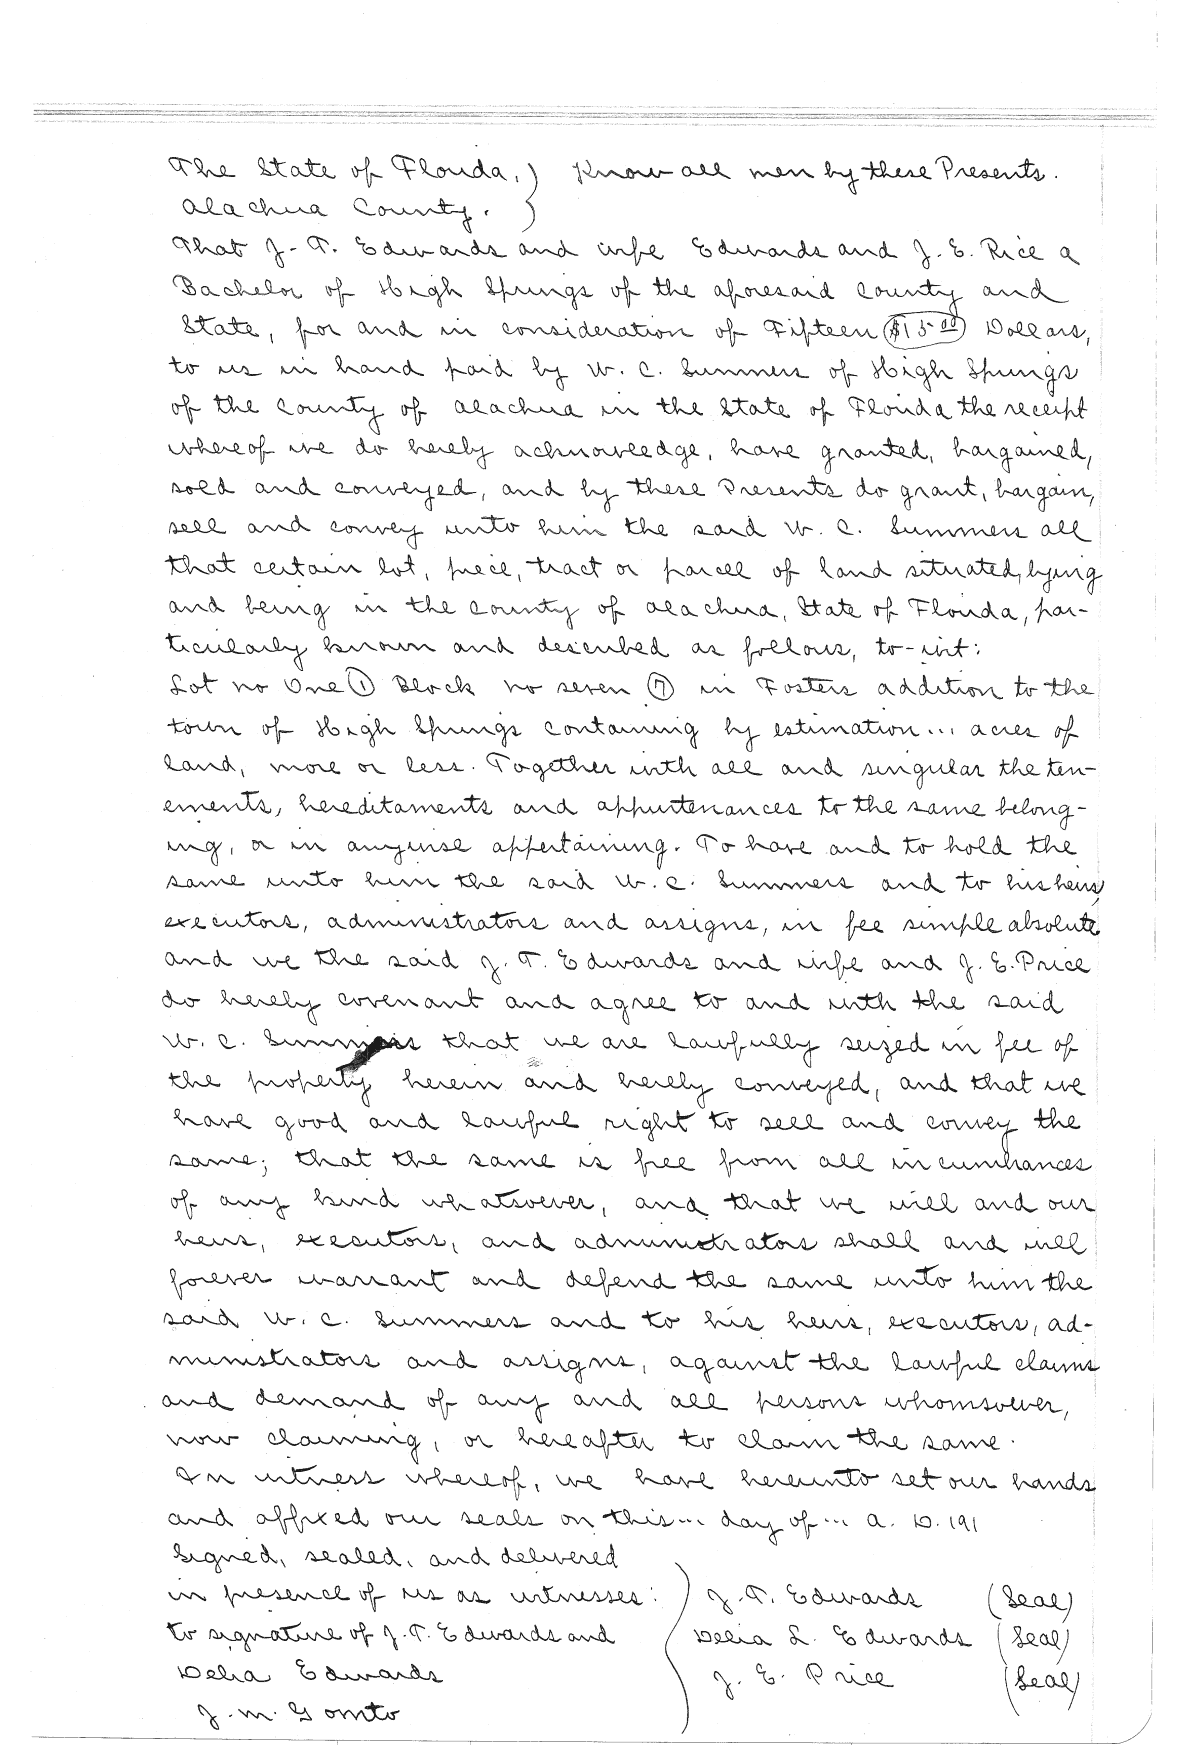 The State of Florida, ) Know all men by these Presents.
Alachua County. )
That J. T. Edwards and wife Edwards and J. E. Rice a
Bachelor of High Springs of the aforesaid County and
State, for and in consideration of Fifteen $15.00 Dollars,
to us in hand paid by W. C. Summers of High Springs
of the County of Alachua in the State of Florida the receipt
whereof we do hereby acknowledge, have granted, bargained,
sold and conveyed, and by these Presents do grant, bargain,
sell and convey unto him the said W. C. Summers all
that certain lot, piece, tract or parcel of land situated, lying
and being in the County of Alachua, State of Florida, par-
ticularly known and described as follows, to-wit:
Lot no One (1) Block no seven (7) in Fosters addition to the
town of High Springs containing by estimation... acres of
land, more or less. Together with all and singular the ten-
ements, hereditaments and appurtenances to the same belong-
ing, or in anywise appertaining. To have and to hold the
same unto him the said W. C. Summers and to his heirs,
executors, administrators and assigns, in fee simple absolute
and we the said J. T. Edwards and wife and J. E. Price
do hereby covenant and agree to and with the said
W. C. Summers that we are lawfully seized in fee of
the property herein and hereby conveyed, and that we
have good and lawful right to sell and convey the
same; that the same is free from all incumbrances
of any kind whatsoever, and that we will and our
heirs, executors, and administrators shall and will
forever warrant and defend the same unto him the
said W. C. Summers and to his heirs, executors, ad-
ministrators and assigns, against the lawful claims
and demand of any and all persons whomsoever,
now claiming, or hereafter to claim the same.
In witness whereof, we have hereunto set our hands
and affixed our seals on this... day of... A. D. 191
Signed, sealed, and delivered
in presence of us as witnesses: ) J. T. Edwards (Seal)
to signature of J. T. Edwards and Delia L. Edwards (Seal)
Delia Edwards J. E. Price (Seal)
J. M. Gomto